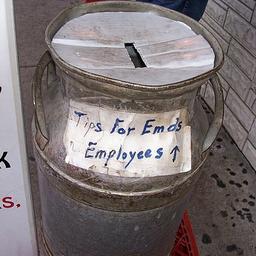 Tips For Emd's
Employees ↑
K
s.